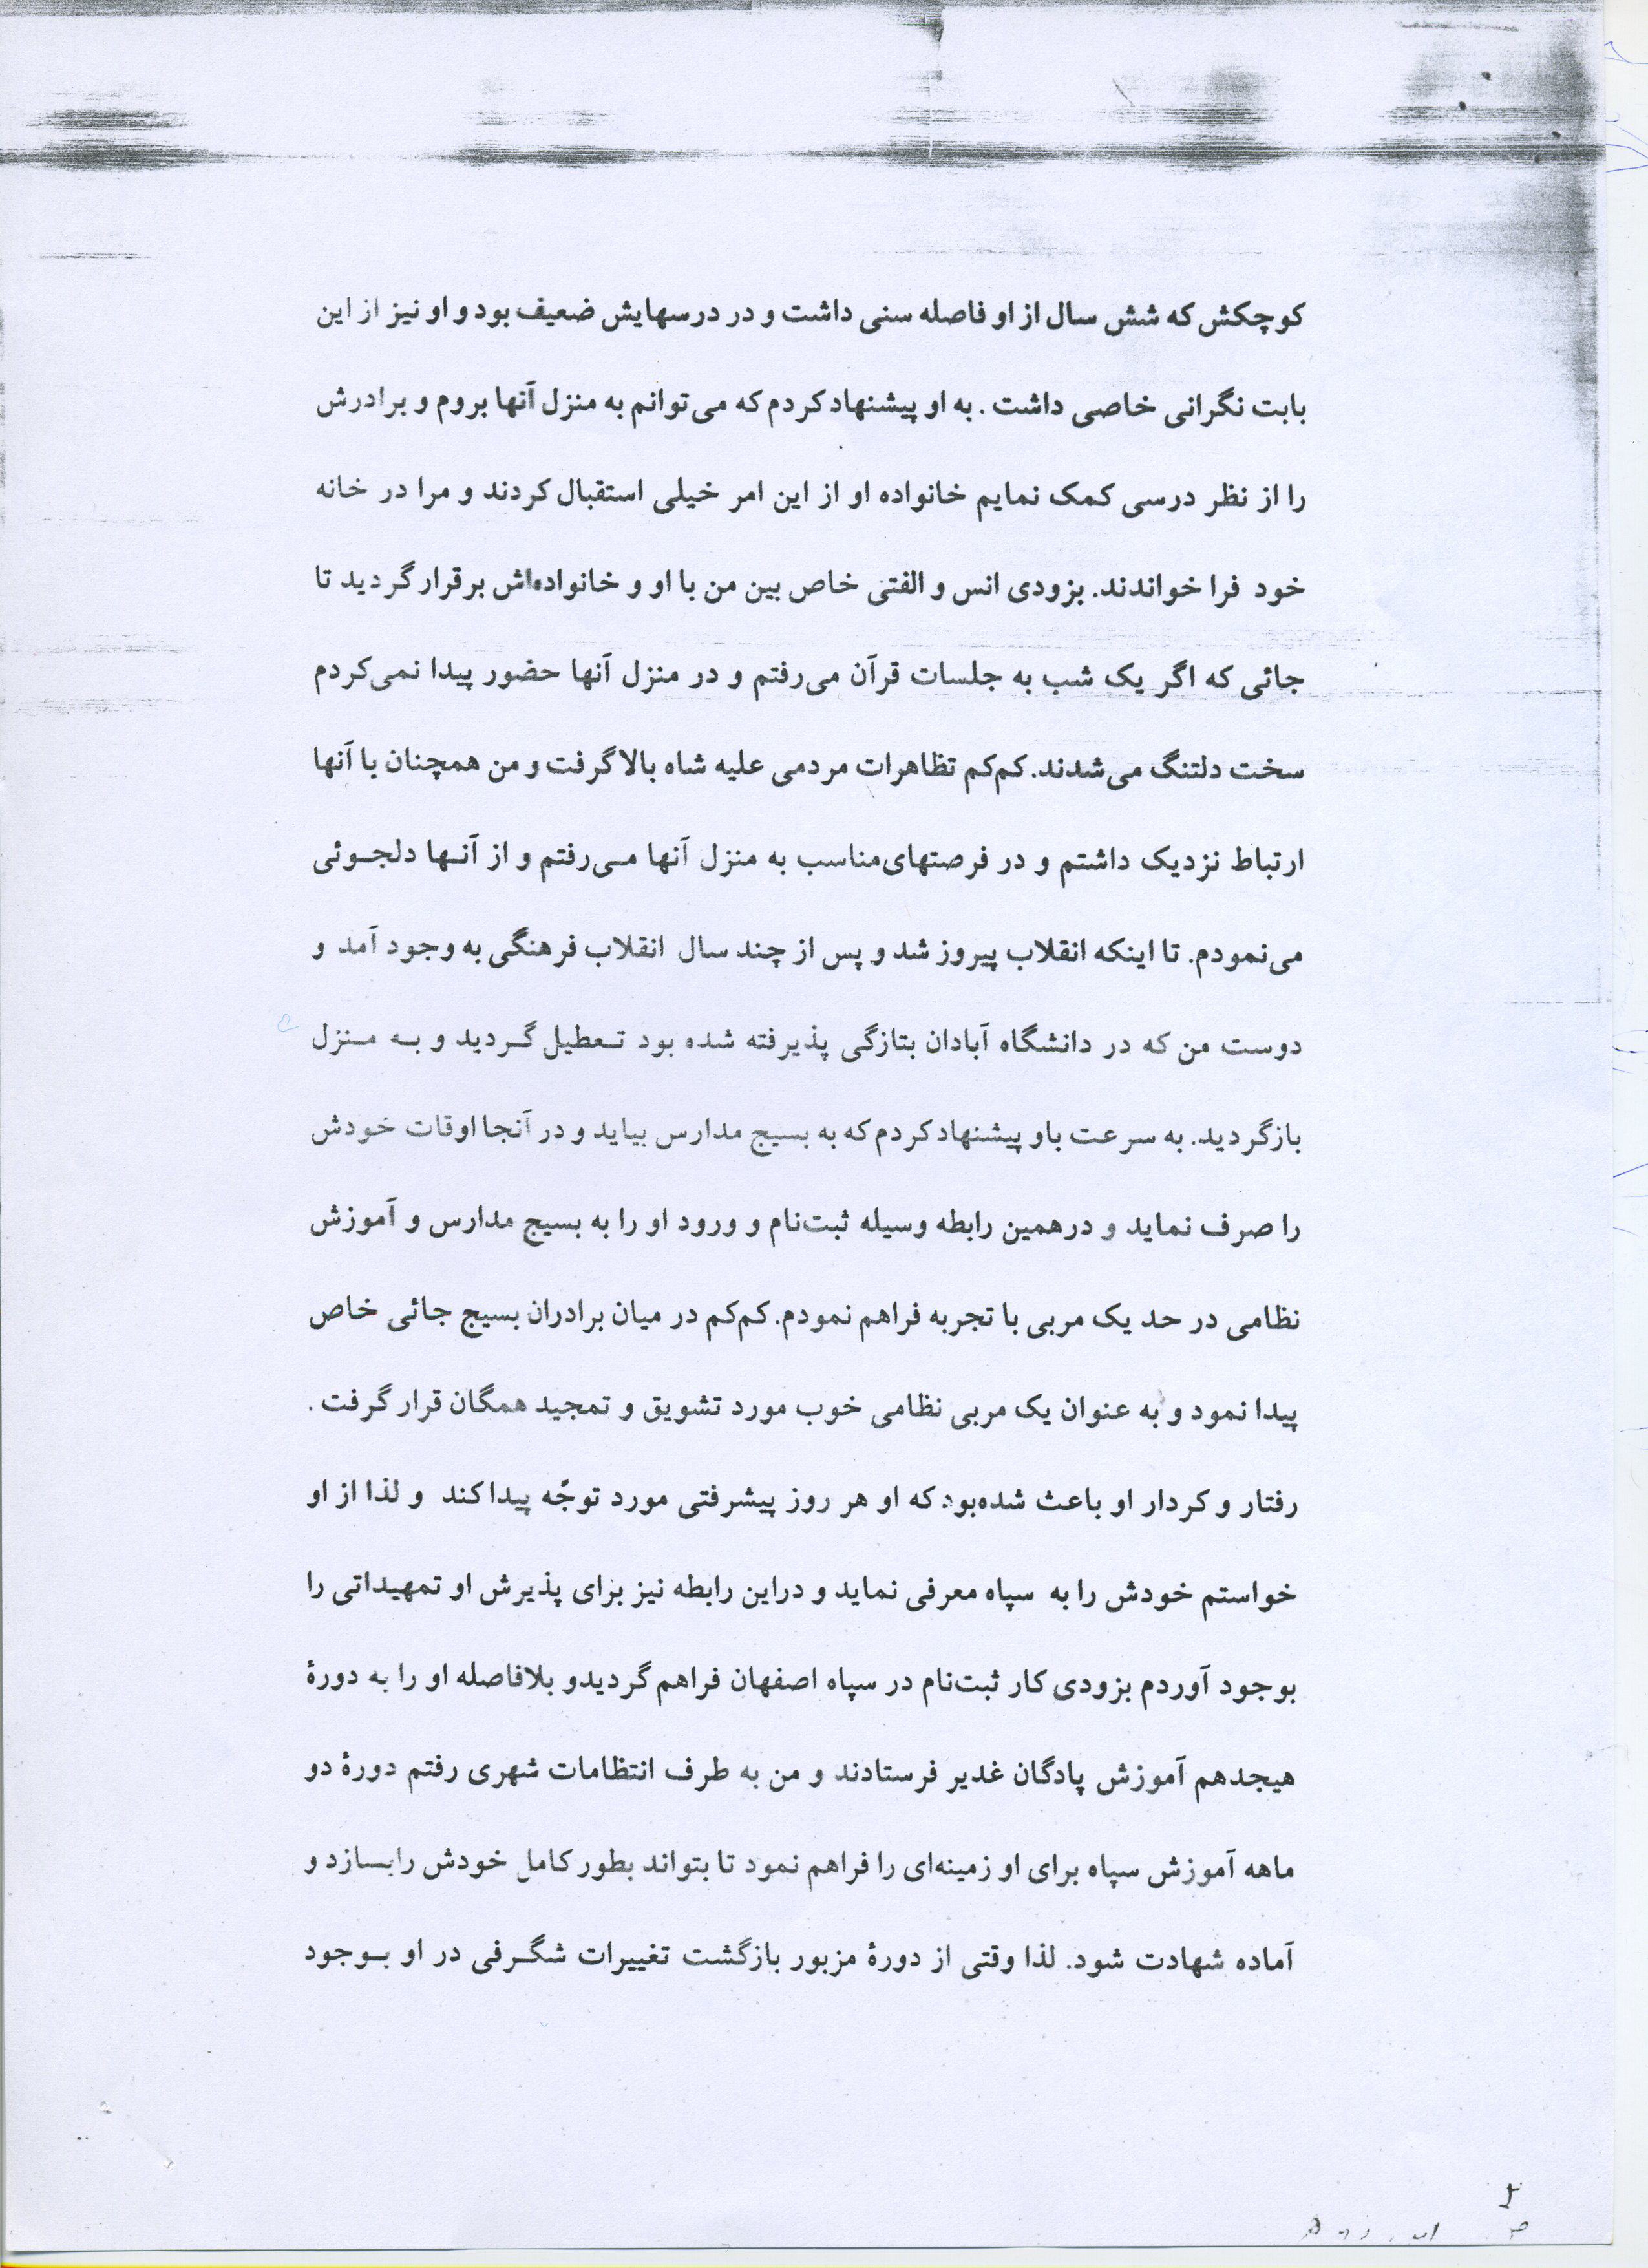 کوچکش که شش سال از او فاصله سنی داشت و در درسهایش ضعیف بود و او نیز از این
بابت نگرانی خاصی داشت . به او پیشنهاد کردم که می‌توانم به منزل آنها بروم و برادرش
را از نظر درسی کمک نمایم خانواده او از این امر خیلی استقبال کردند و مرا در خانه
خود فرا خواندند. بزودی انس و الفتی خاص بین من با او و خانواده‌اش برقرار گردید تا
جائی که اگر یک شب به جلسات قرآن می‌رفتم و در منزل آنها حضور پیدا نمی‌کردم
سخت دلتنگ می‌شدند. کم‌کم تظاهرات مردمی علیه شاه بالا گرفت و من همچنان با آنها
ارتباط نزدیک داشتم و در فرصتهای‌مناسب به منزل آنها مـی‌رفتم و از آنـها دلجـوئی
می‌نمودم. تا اینکه انقلاب پیروز شد و پس از چند سال انقلاب فرهنگی به وجود آمد و
دوست من که در دانشگاه آبادان بتازگی پذیرفته شده بود تـعطیل گـردید و بـه مـنزل
بازگردید. به سرعت باو پیشنهاد کردم که به بسیج مدارس بیاید و در آنجا اوقات خودش
را صرف نماید و درهمین رابطه وسیله ثبت‌نام و ورود او را به بسیج مدارس و آموزش
نظامی در حد یک مربی با تجربه فراهم نمودم. کم‌کم در میان برادران بسیج جائی خاص
پیدا نمود و به عنوان یک مربی نظامی خوب مورد تشویق و تمجید همگان قرار گرفت .
رفتار و کردار او باعث شده‌بود که او هر روز پیشرفتی مورد توجّه پیدا کند و لذا از او
خواستم خودش را به سپاه معرفی نماید و دراین رابطه نیز برای پذیرش او تمهیداتی را
بوجود آوردم بزودی کار ثبت‌نام در سپاه اصفهان فراهم گردیدو بلافاصله او را به دورهٔ
هیجدهم آموزش پادگان غدیر فرستادند و من به طرف انتظامات شهری رفتم دورهٔ دو
ماهه آموزش سپاه برای او زمینه‌ای را فراهم نمود تا بتواند بطور کامل خودش رابسازد و
آماده شهادت شود. لذا وقتی از دورهٔ مزبور بازگشت تغییرات شگـرفی در او بـوجود